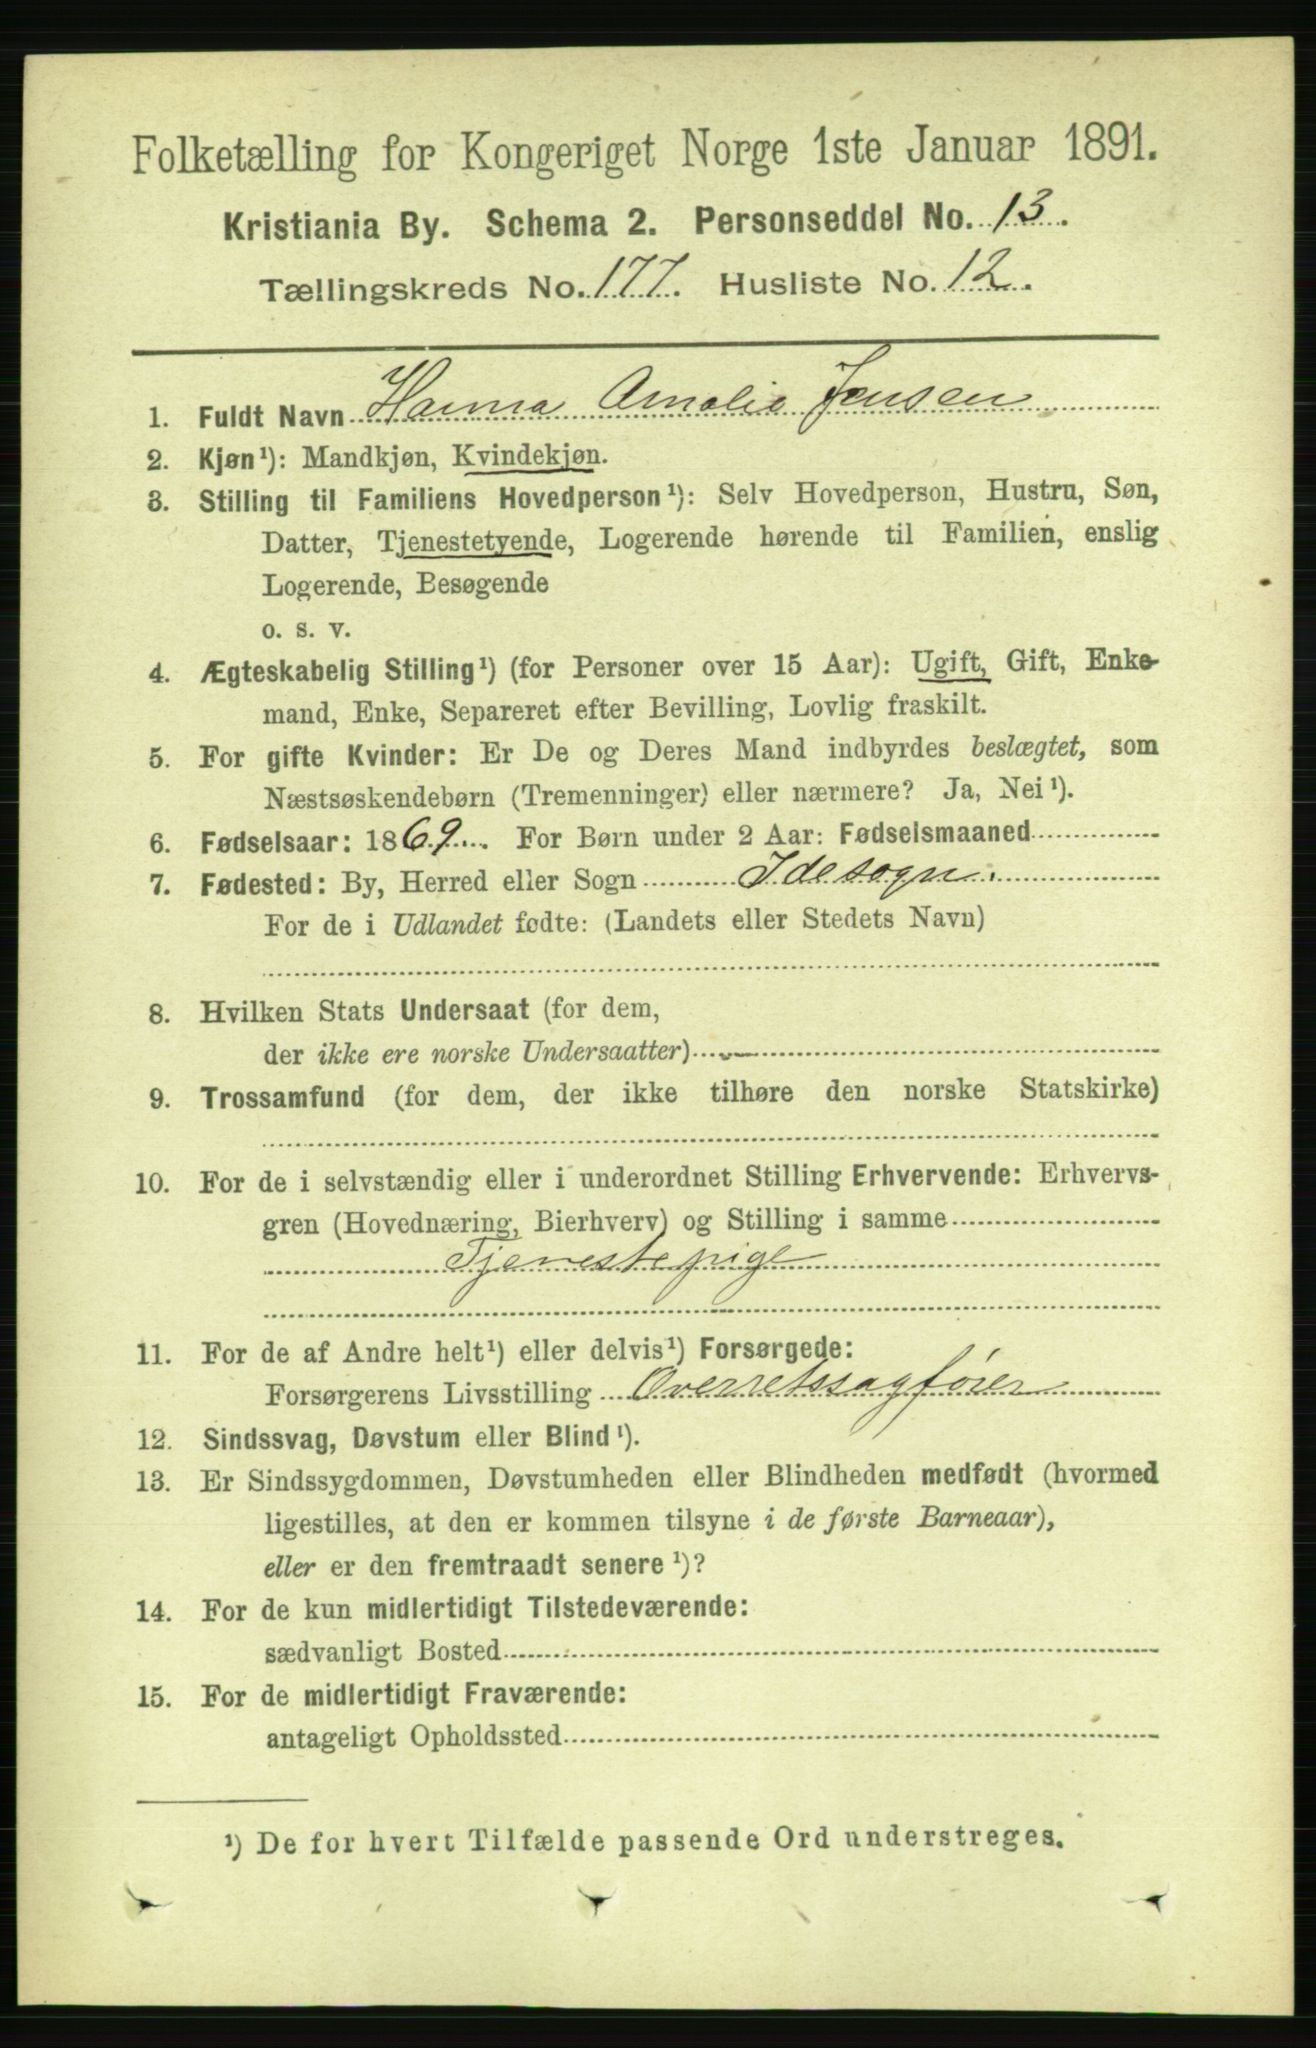 Folketælling for Kongeriget Norge 1ste Januar 1891.
Kristiania By. Schema 2. Personseddel No. 13.
Tællingskreds No. 177. Husliste No. 12.
1. Fuldt Navn Hanna Amalie Jensen
2. Kjøn¹): Mandkjøn, Kvindekjøn.
3. Stilling til Familiens Hovedperson¹): Selv Hovedperson, Hustru, Søn,
Datter, Tjenestetyende, Logerende hørende til Familien, enslig
Logerende, Besøgende
o. s. v.
4. Ægteskabelig Stilling¹) (for Personer over 15 Aar): Ugift, Gift, Enke-
mand, Enke, Separeret efter Bevilling, Lovlig fraskilt.
5. For gifte Kvinder: Er De og Deres Mand indbyrdes beslægtet, som
Næstsøskendebørn (Tremenninger) eller nærmere? Ja, Nei¹).
6. Fødselsaar: 1869. For Børn under 2 Aar: Fødselsmaaned
7. Fødested: By, Herred eller Sogn Idesogn.
For de i Udlandet fødte: (Landets eller Stedets Navn)
8. Hvilken Stats Undersaat (for dem,
der ikke ere norske Undersaatter)
9. Trossamfund (for dem, der ikke tilhøre den norske Statskirke)
10. For de i selvstændig eller i underordnet Stilling Erhvervende: Erhvervs-
gren (Hovednæring, Bierhverv) og Stilling i samme
Tjenestepige
11. For de af Andre helt¹) eller delvis¹) Forsørgede:
Forsørgerens Livsstilling Overretssagfører
12. Sindssvag, Døvstum eller Blind¹).
13. Er Sindssygdommen, Døvstumheden eller Blindheden medfødt (hvormed
ligestilles, at den er kommen tilsyne i de første Barneaar),
eller er den fremtraadt senere¹)?
14. For de kun midlertidigt Tilstedeværende:
sædvanligt Bosted
15. For de midlertidigt Fraværende:
antageligt Opholdssted
¹) De for hvert Tilfælde passende Ord understreges.